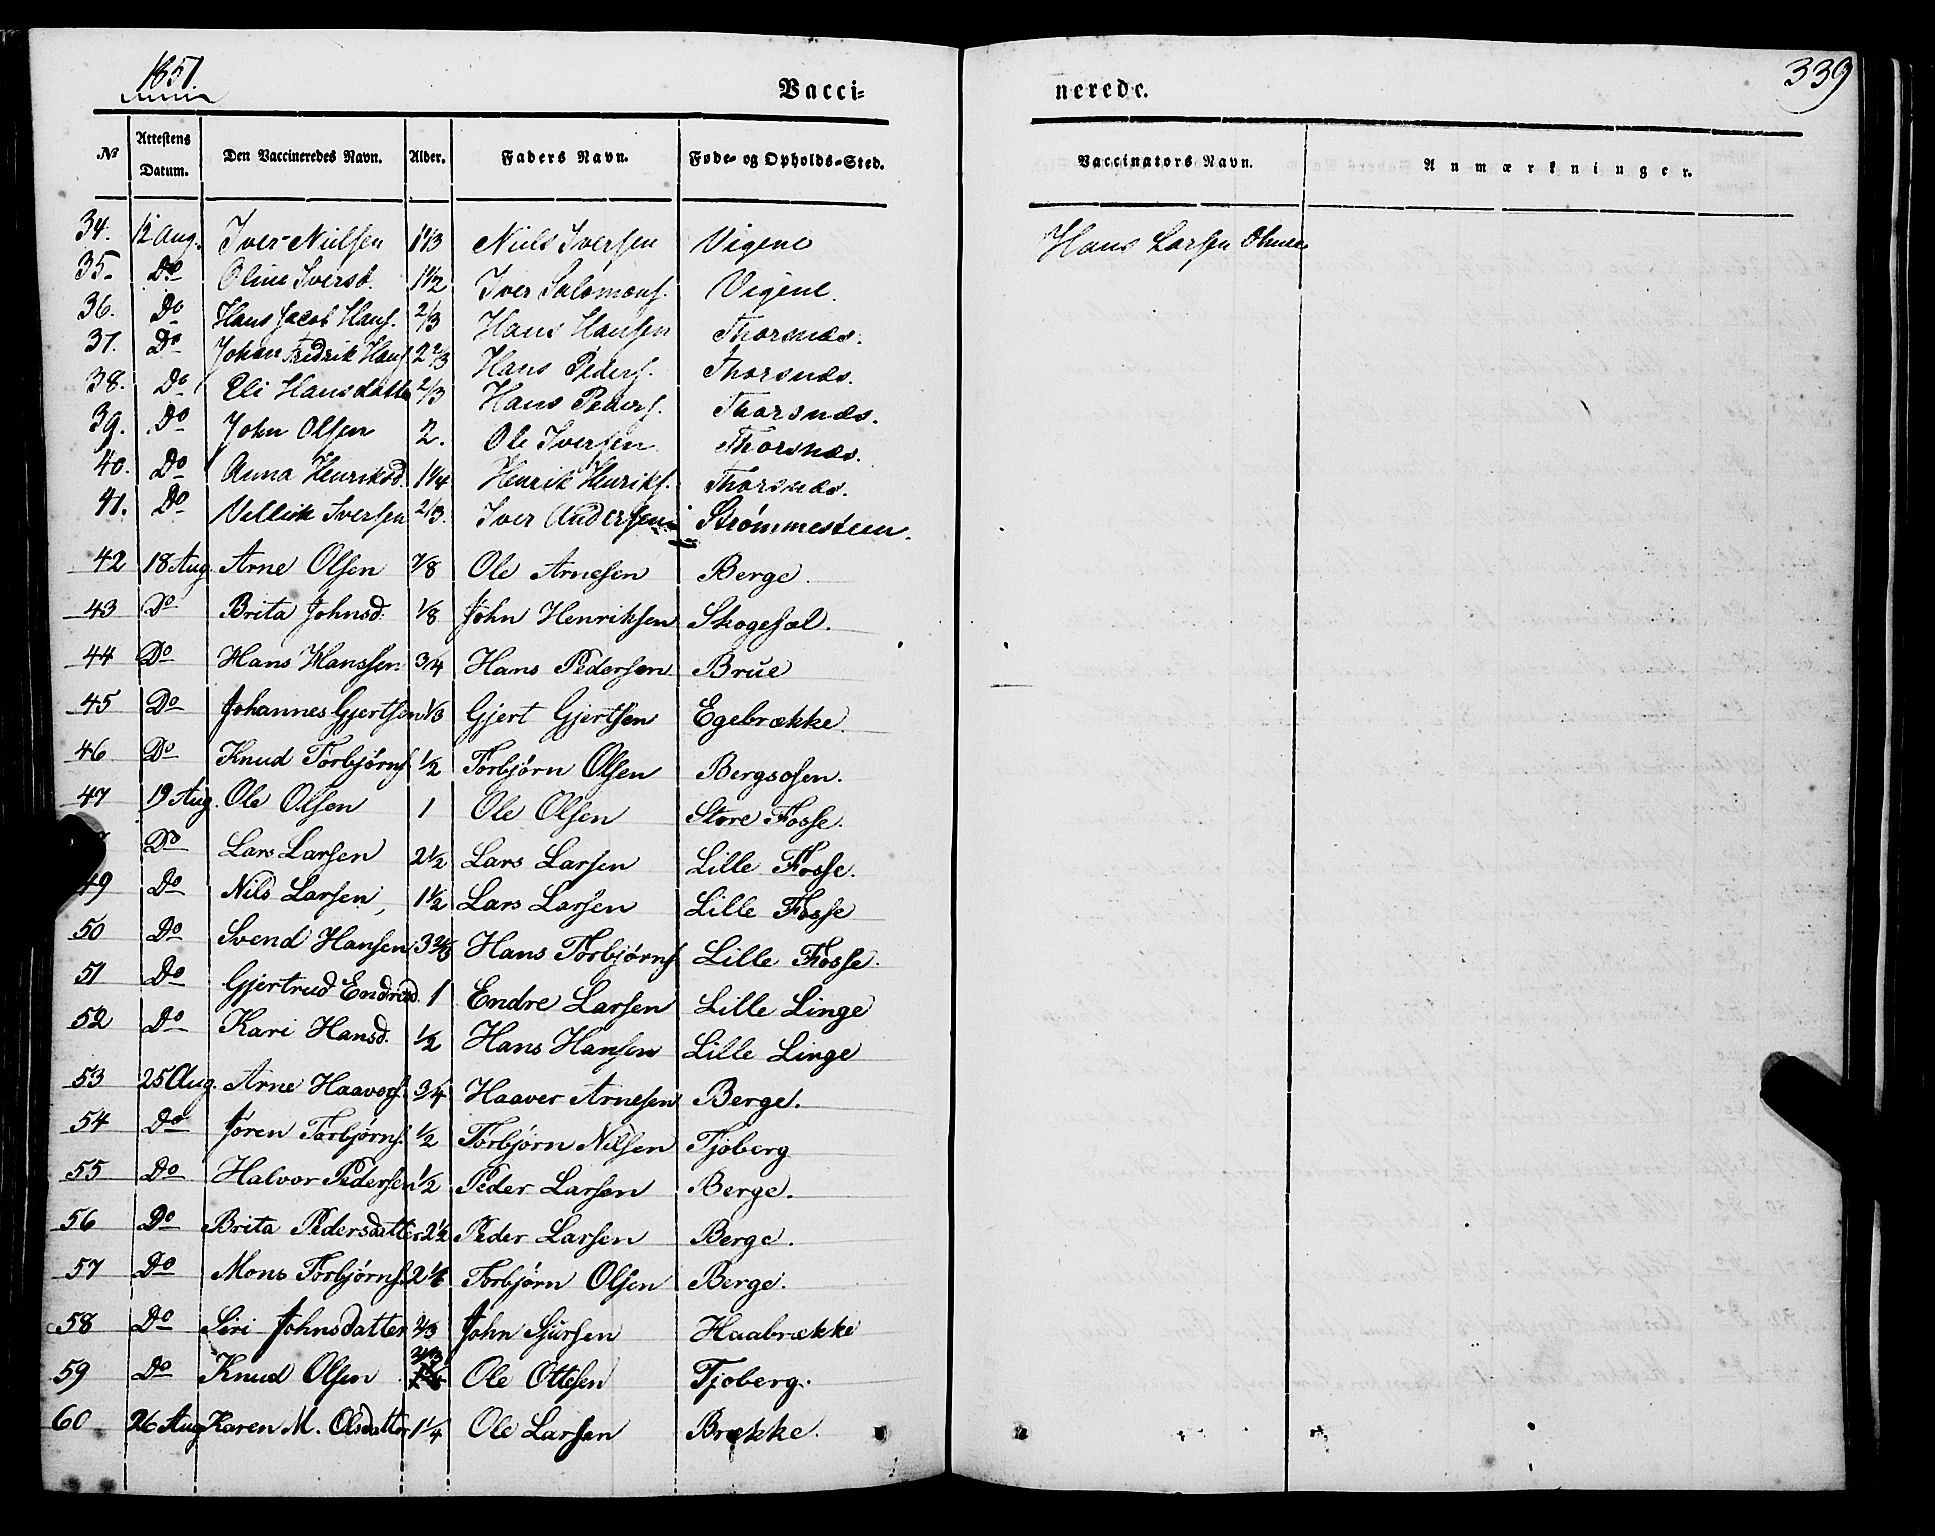 1851
339
Vacci-
nerede.
No Attestens Datum. Den Vaccineredes Navn. Alder. Faders Navn. Føde- og Opholds-Sted. Vaccinators Navn. Anmærkninger.
34. 12 Aug. Iver Nielsen 1 1/3 Niels Iversen Vigene Hans Larsen
35. Do Oline Iversd. 1 1/2 Iver Salomons. Vigene.
36. Do Hans Jacob Hans. 2/3 Hans Hansen Thorsnæs.
37. Do Johan Fredrik Hans. 2 2/3 Hans Peders. Thorsnæs.
38. Do Eli Hansdatter 2/3 Hans Peders. Thorsnæs.
39. Do John Olsen 2. Ole Iversen Thorsnæs.
40. Do Anna Henriksd. 1 1/4 Henrik Henriks. Thorsnæs.
41. Do Iversen 2/3. Iver Andersen Strømmesteen.
42 18 Aug. Arne Olsen 7/8 Ole Arnesen Berge.
43 Do Brita Johnsd. 1/8 John Henriksen Skogesæl.
44 Do Hans Hanssen 3/4 Hans Pedersen Brue
45 Do Johannes Gjertsen 1/3 Gjert Gjertsen Egebrække.
46 Do Knud Torbjørns. 1/2 Torbjørn Olsen Bergsosen.
47 19 Aug. Ole Olsen 1 Ole Olsen Store Fosse.
Do Lars Larsen 2 1/2 Lars Larsen Lille Fosse.
49 Do Nils Larsen, 1 1/2 Lars Larsen Lille Fosse
50 Do Svend Hansen 3 2/3 Hans Torbjørns. Lille Fosse.
51 Do Gjertrud Endresd. 1 Endre Larsen Lille Linge
52 Do Kari Hansd. 1/2 Hans Hansen Lille Linge
53 25 Aug. Arne Haavers. 3/4 Haaver Arnesen Berge.
54 Do Jøren Torbjørns. 1/2 Torbjørn Nilsen Tjoberg
55 Do Halvor Pedersen 1/2 Peder Larsen Berge.
56 Do Brita Pedersdatter 2 1/2 Peder Larsen Berge.
57 Do Mons Torbjørns. 2 1/6 Torbjørn Olsen Berge.
58 Do Siri Johnsdatter 2/3 John Sjursen Haabrække
59 Do Knud Olsen 2/3 Ole Ottesen Tjoberg.
60 26 Aug Karen M. Olsdatter 1 1/4 Ole Larsen Brække.